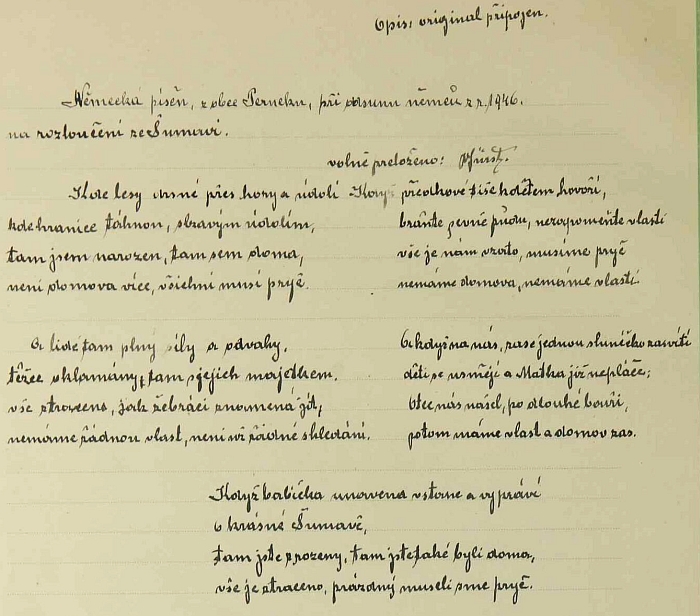 Opis: original připojen.
Německá písěn, z obce Perneku, při odsunu němců z r. 1946.
na rozloučení ze Šumavi.
volně preloženo: Fürst.
Kde lesy drsné přes hory a údolí
kde hranice táhnou, sbravým údolím,
tam jsem narozen, tam sem doma,
neni domova více, všichni musí pryč.
Když předkové tiše k dětem hovoří,
braňte pevně půdu, nezapomeňte vlasti
vše je nám vzato, musíme pryč
nemáme domova, nemáme vlasti.
A lidé tam plný síly a odvahy,
těžce sklamány, tam s jejich majetkem.
vše ztraceno, jak žebráci znamená jít,
nemáme řádnou vlast, neni víc řádné shledání.
A když na nás, zase jednou sluníčko zasvítí
děti se usmějí a Matka již nepláče;
Otec nás našel, po dlouhé bouři,
potom máme vlast a domov zas.
Když babička unavena vstane a vypráví
o krásné Šumavě,
tam jste zrozeny, tam jste také byli doma,
vše je straceno, prázdný museli sme pryč.